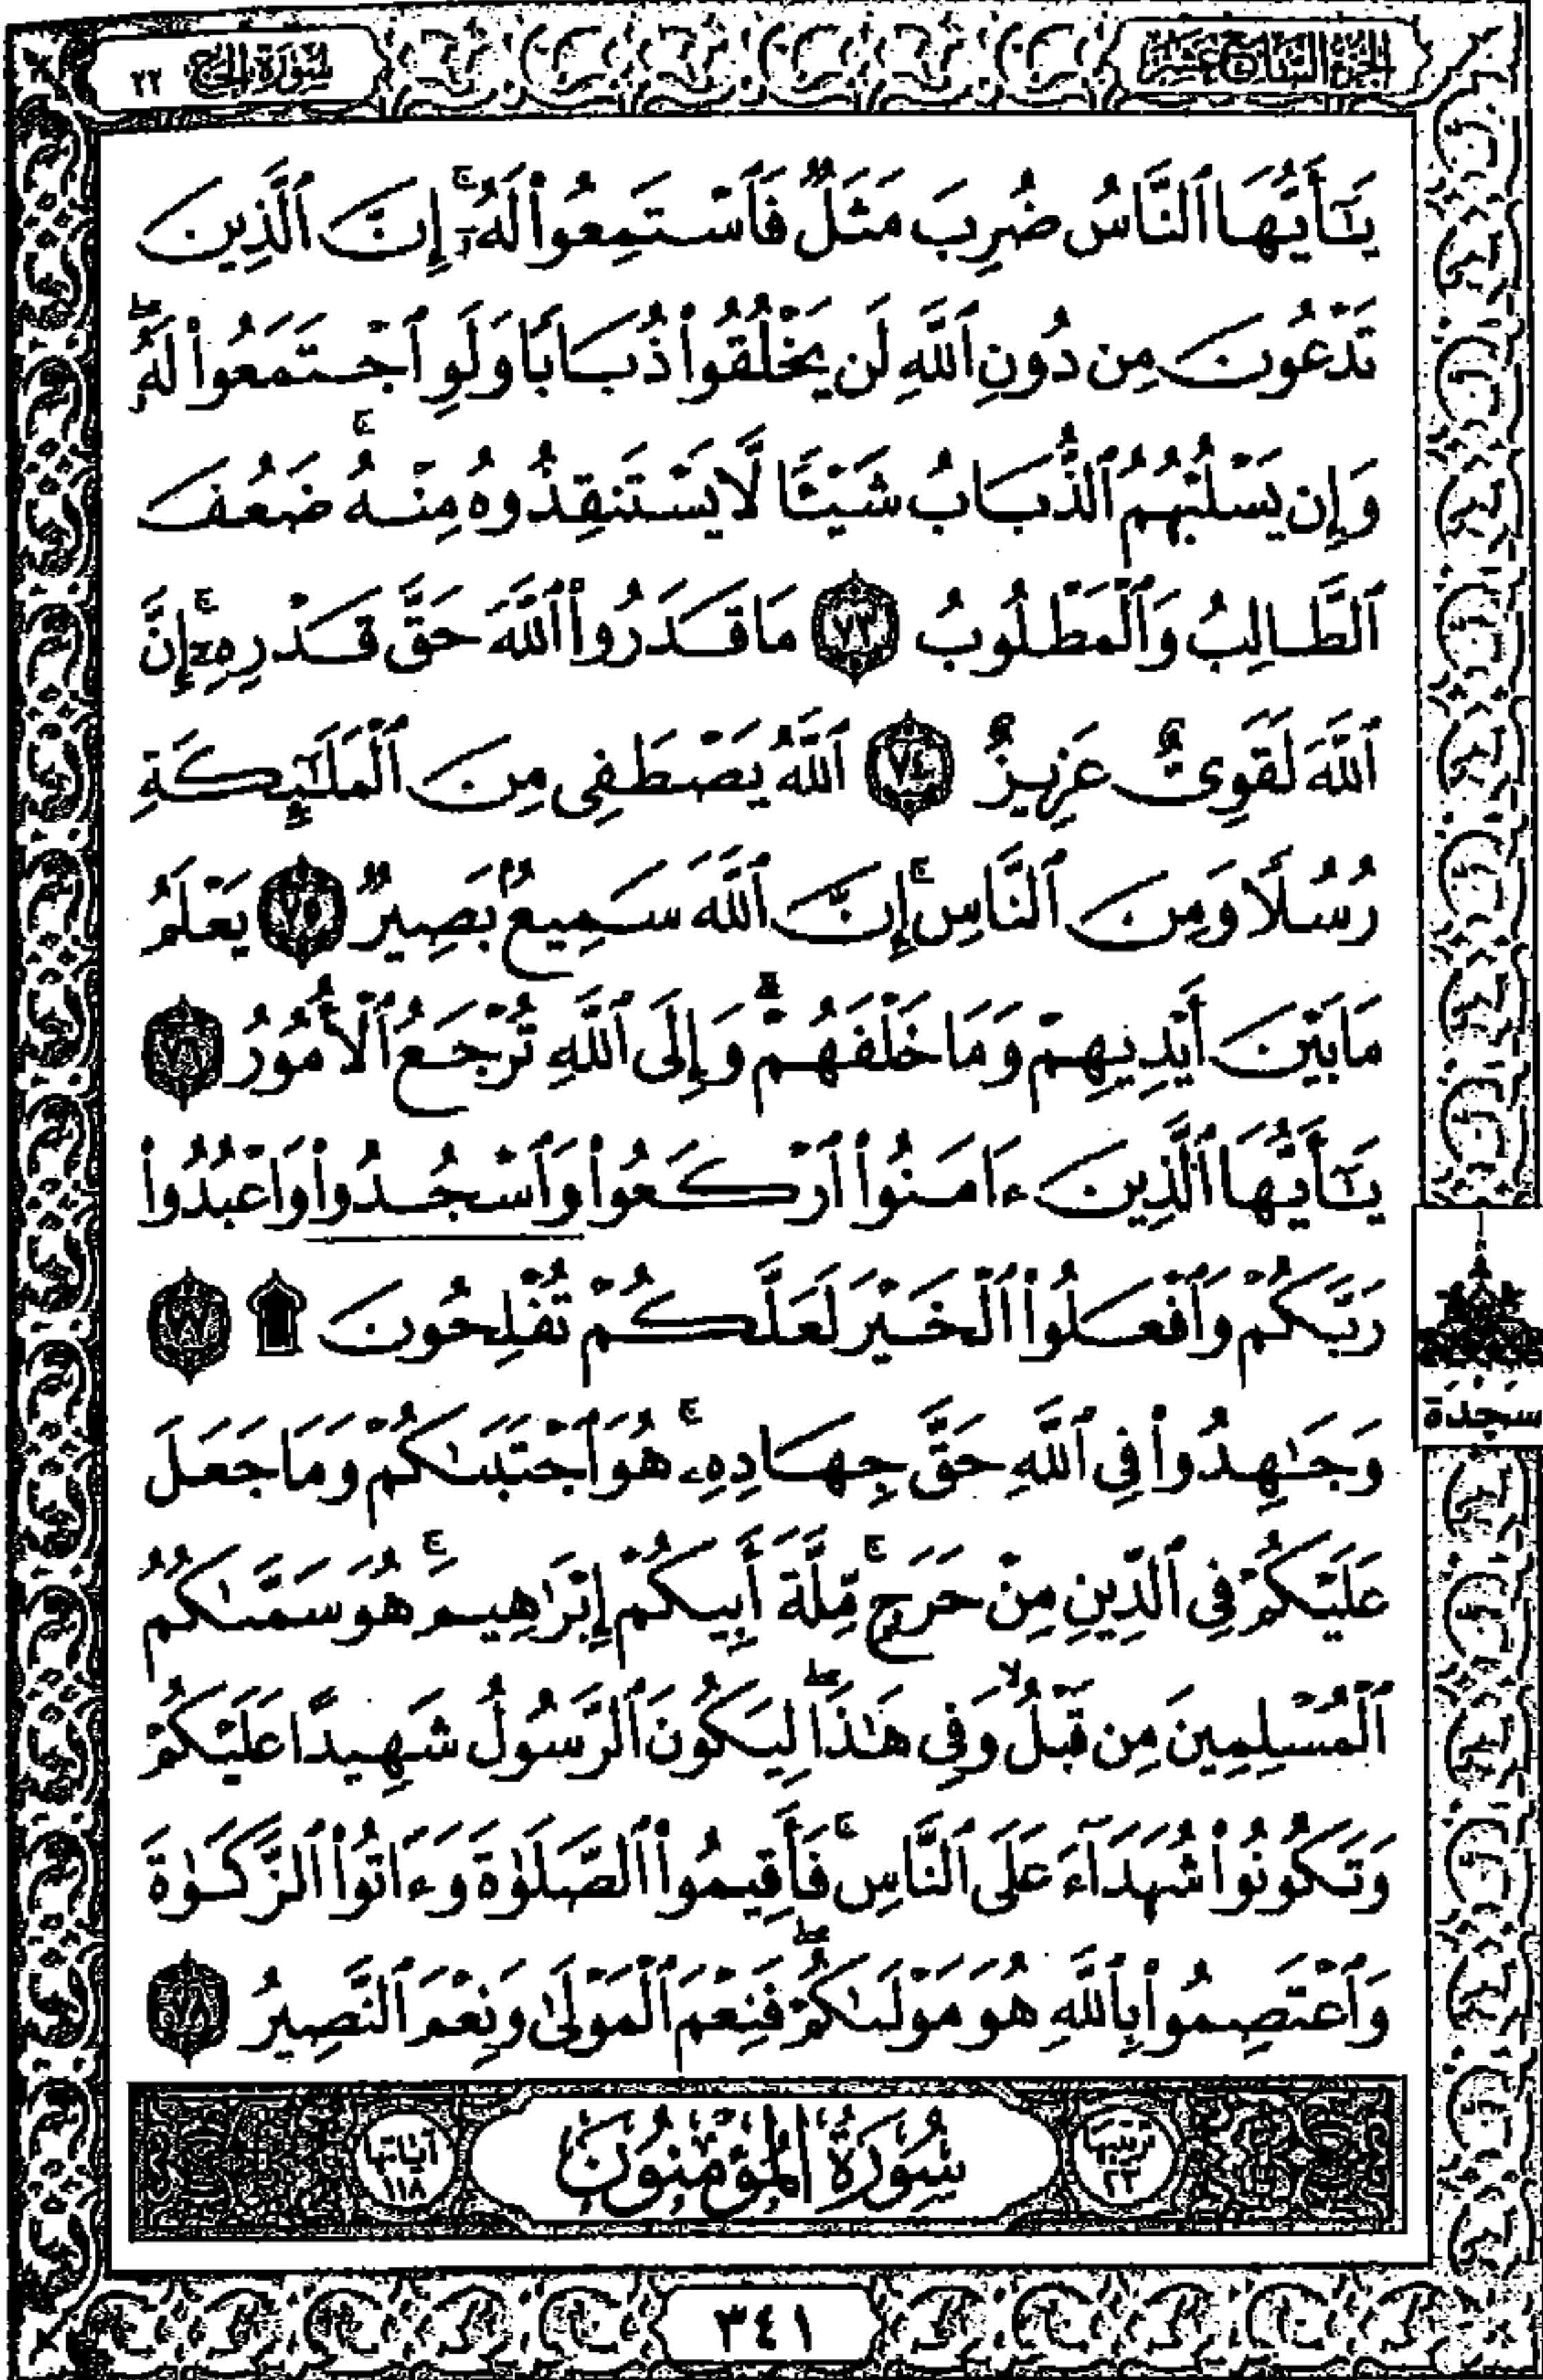 الجزء السابع عشر
سورة الحج ٢٢
يَٰٓأَيُّهَا ٱلنَّاسُ ضُرِبَ مَثَلٌ فَٱسْتَمِعُوا۟ لَهُۥٓ ۚ إِنَّ ٱلَّذِينَ
تَدْعُونَ مِن دُونِ ٱللَّهِ لَن يَخْلُقُوا۟ ذُبَابًا وَلَوِ ٱجْتَمَعُوا۟ لَهُۥ ۖ
وَإِن يَسْلُبْهُمُ ٱلذُّبَابُ شَيْـًٔا لَّا يَسْتَنقِذُوهُ مِنْهُ ۚ ضَعُفَ
ٱلطَّالِبُ وَٱلْمَطْلُوبُ ٧٣ مَا قَدَرُوا۟ ٱللَّهَ حَقَّ قَدْرِهِۦٓ ۗ إِنَّ
ٱللَّهَ لَقَوِىٌّ عَزِيزٌ ٧٤ ٱللَّهُ يَصْطَفِى مِنَ ٱلْمَلَٰٓئِكَةِ
رُسُلًا وَمِنَ ٱلنَّاسِ ۚ إِنَّ ٱللَّهَ سَمِيعٌۢ بَصِيرٌ ٧٥ يَعْلَمُ
مَا بَيْنَ أَيْدِيهِمْ وَمَا خَلْفَهُمْ ۗ وَإِلَى ٱللَّهِ تُرْجَعُ ٱلْأُمُورُ ٧٦
يَٰٓأَيُّهَا ٱلَّذِينَ ءَامَنُوا۟ ٱرْكَعُوا۟ وَٱسْجُدُوا۟ وَٱعْبُدُوا۟
رَبَّكُمْ وَٱفْعَلُوا۟ ٱلْخَيْرَ لَعَلَّكُمْ تُفْلِحُونَ ۩ ٧٧
سَجْدَة
وَجَٰهِدُوا۟ فِى ٱللَّهِ حَقَّ جِهَادِهِۦ ۚ هُوَ ٱجْتَبَىٰكُمْ وَمَا جَعَلَ
عَلَيْكُمْ فِى ٱلدِّينِ مِنْ حَرَجٍ ۚ مِّلَّةَ أَبِيكُمْ إِبْرَٰهِيمَ ۚ هُوَ سَمَّىٰكُمُ
ٱلْمُسْلِمِينَ مِن قَبْلُ ۙ وَفِى هَٰذَا ۖ لِيَكُونَ ٱلرَّسُولُ شَهِيدًا عَلَيْكُمْ
وَتَكُونُوا۟ شُهَدَآءَ عَلَى ٱلنَّاسِ ۚ فَأَقِيمُوا۟ ٱلصَّلَوٰةَ وَءَاتُوا۟ ٱلزَّكَوٰةَ
وَٱعْتَصِمُوا۟ بِٱللَّهِ هُوَ مَوْلَىٰكُمْ ۖ فَنِعْمَ ٱلْمَوْلَىٰ وَنِعْمَ ٱلنَّصِيرُ ٧٨
ترتيبها ٢٣
سُورَةُ المؤمِنُون
آياتها ١١٨
٣٤١